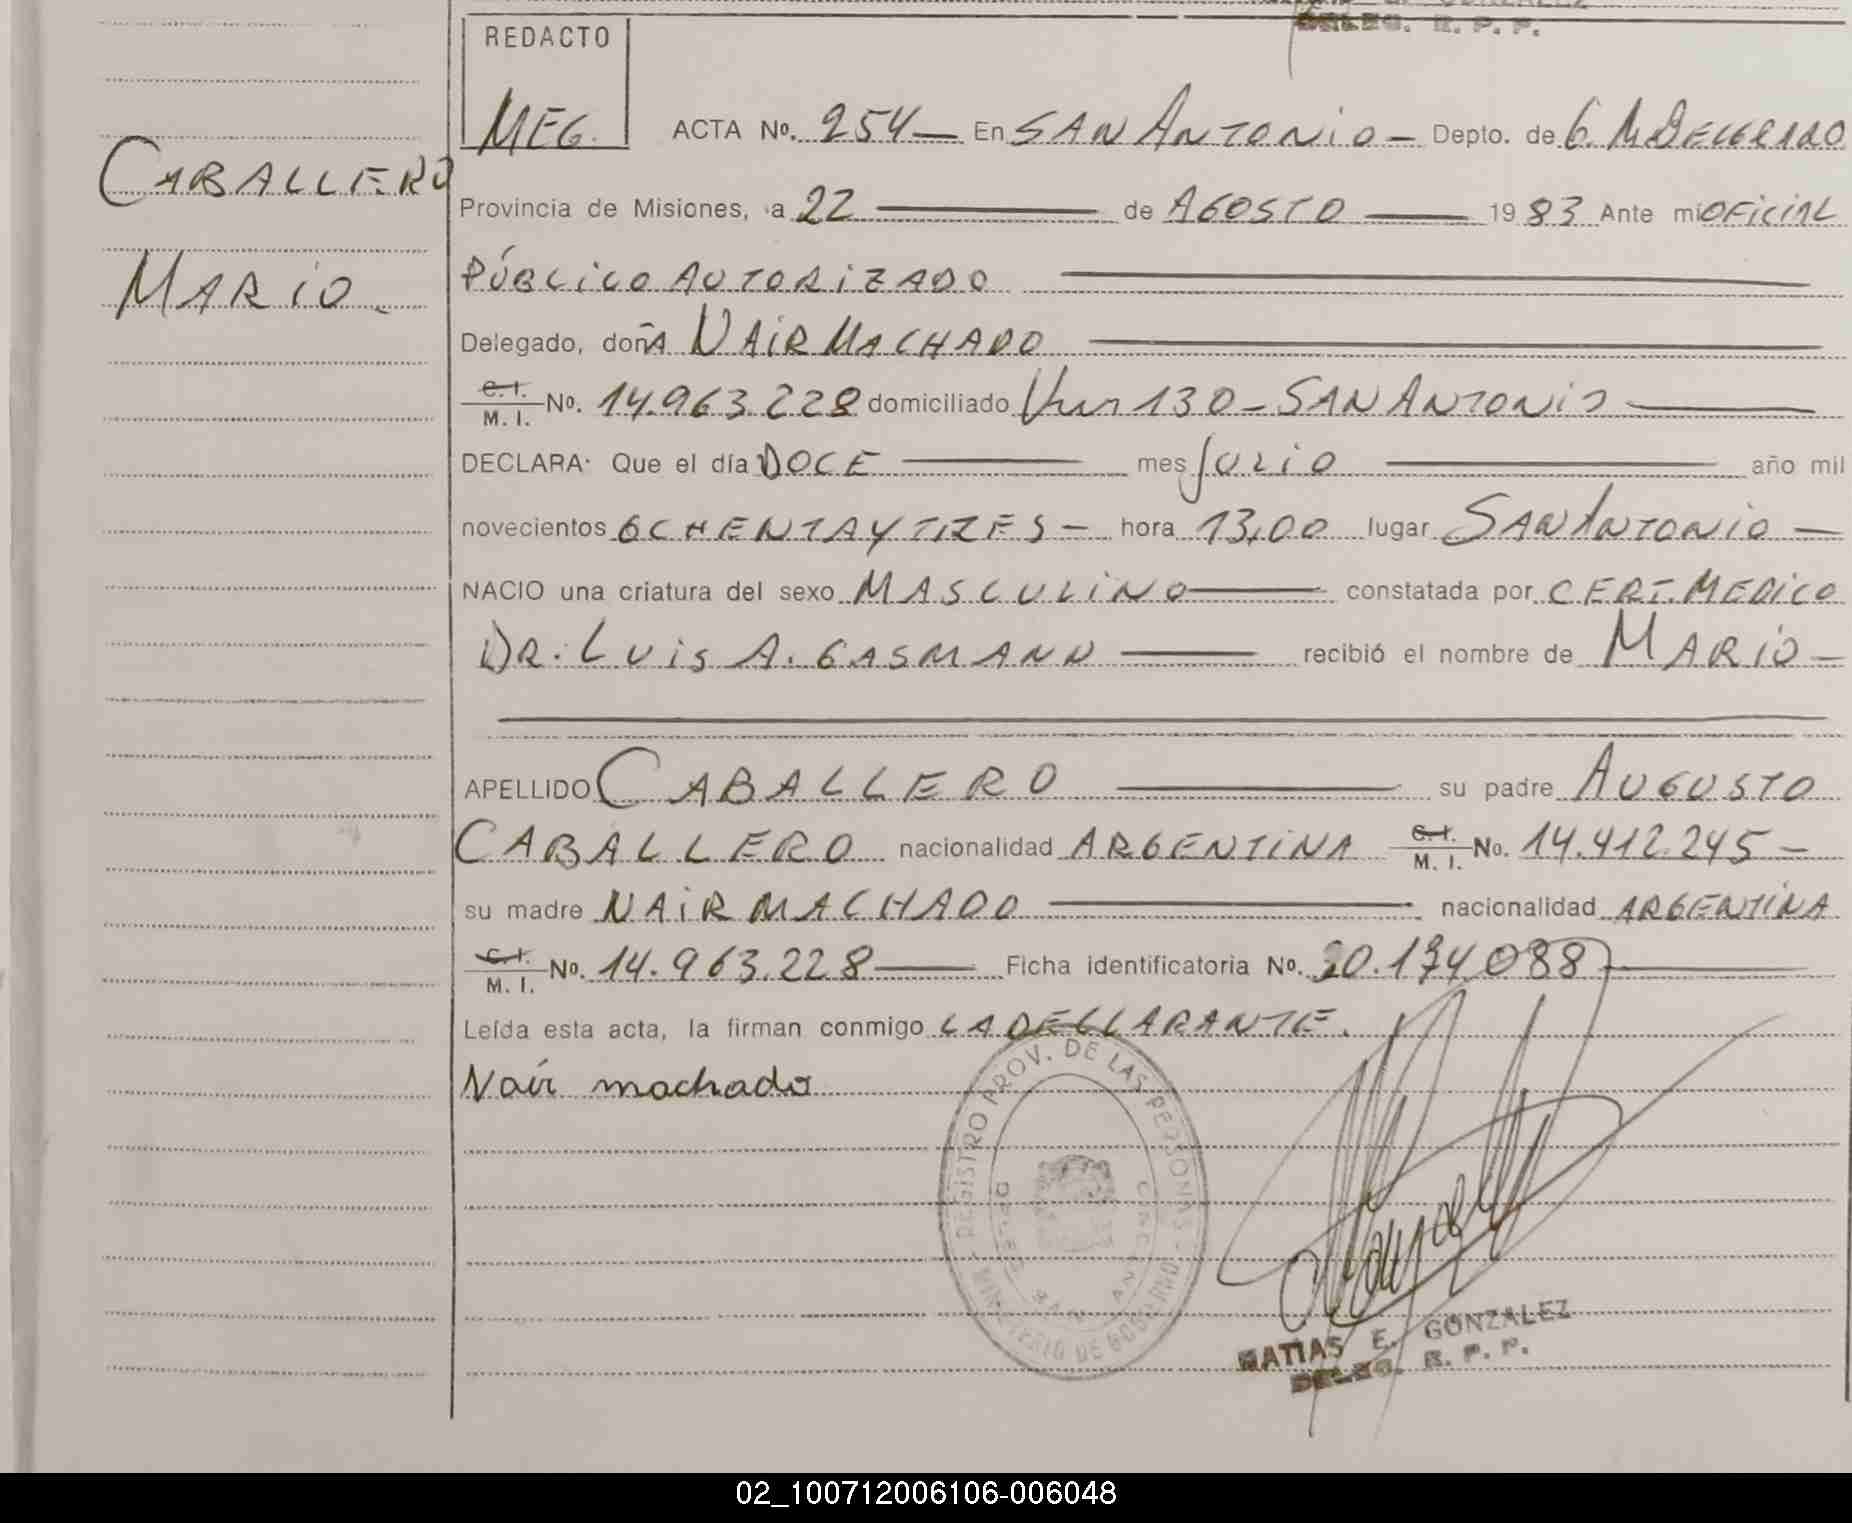 DELEG. R. P. P.
REDACTO
MEG.
CABALLERO
MARIO
ACTA Nº. 254 En SAN ANTONIO Depto. de G. M. BELGRANO
Provincia de Misiones, a 22 de AGOSTO 1983 Ante mí OFICIAL
PÚBLICO AUTORIZADO
Delegado, doñA NAIR MACHADO
C. I. / M. I. Nº. 14.963.228 domiciliado 130 - SAN ANTONIO
DECLARA: Que el día DOCE mes JULIO año mil
novecientos OCHENTA Y TRES - hora 13,00 lugar SAN ANTONIO -
NACIO una criatura del sexo MASCULINO constatada por CERT. MEDICO
DR. LUIS A. GASMANN recibió el nombre de MARIO -
APELLIDO CABALLERO su padre AUGUSTO
CABALLERO nacionalidad ARGENTINA C. I. / M. I. Nº. 14.412.245 -
su madre NAIR MACHADO nacionalidad ARGENTINA
C. I. / M. I. Nº. 14.963.228 Ficha identificatoria Nº. 30.134.088
Leída esta acta, la firman conmigo LA DECLARANTE.
Nair machado
REGISTRO PROV. DE LAS PERSONAS - MINISTERIO DE GOBIERNO -
SAN ANT
MATIAS E. GONZALEZ
DELEG. R. P. P.
02_100712006106-006048